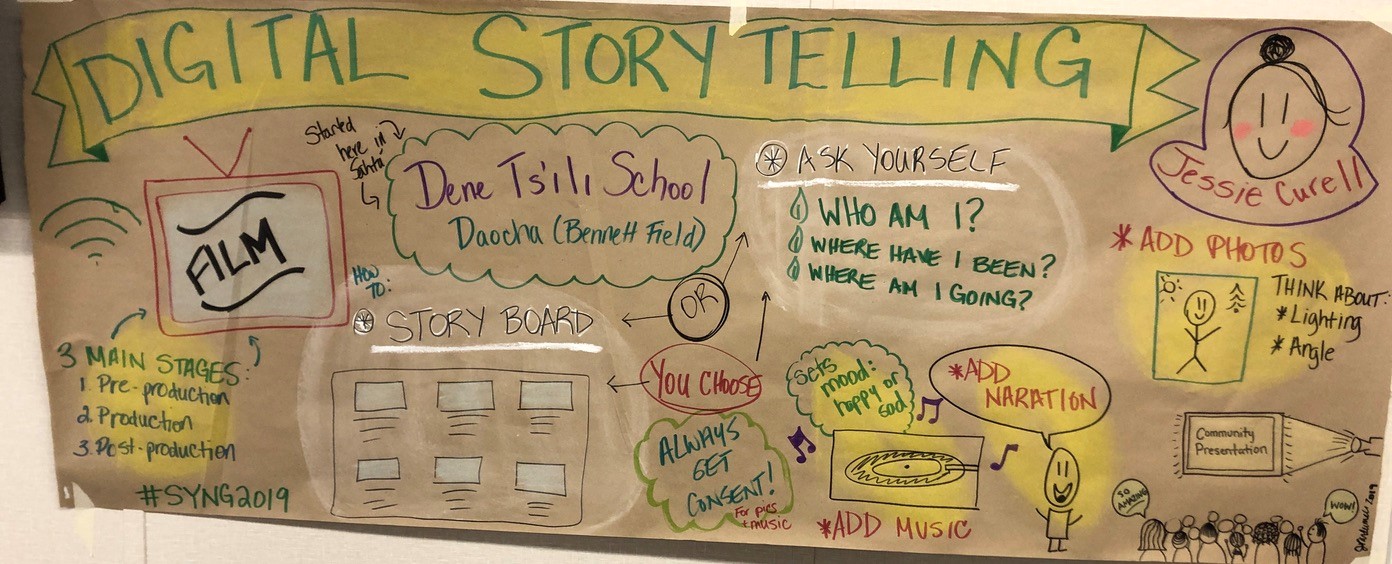 DIGITAL STORYTELLING
Jessie Curell
Started
here in
Dene Tsìlì School
Daocha (Bennett Field)
FILM
3 MAIN STAGES:
1. Pre-production
2. Production
3. Post-production
#SYNG2019
HOW
TO:
* STORY BOARD
OR
YOU CHOOSE
* ASK YOURSELF
WHO AM I?
WHERE HAVE I BEEN?
WHERE AM I GOING?
ALWAYS
GET
CONSENT!
For pics
+ music
Sets
mood:
happy or
sad
*ADD MUSIC
*ADD
NARATION
*ADD PHOTOS
THINK ABOUT:
*Lighting
*Angle
Community
Presentation
SO
AMAZING
WOW!